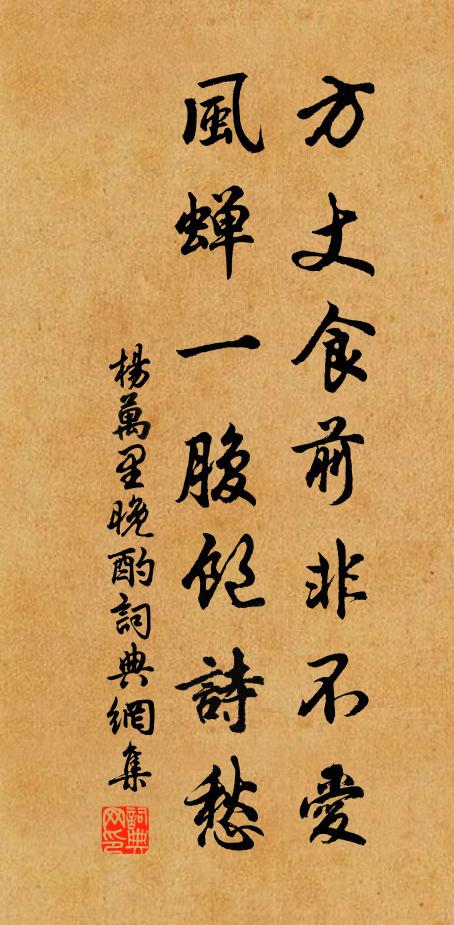 方丈食前非不愛
風蟬一腹飽詩愁
楊萬里晚酌詞典網集
詞典網印